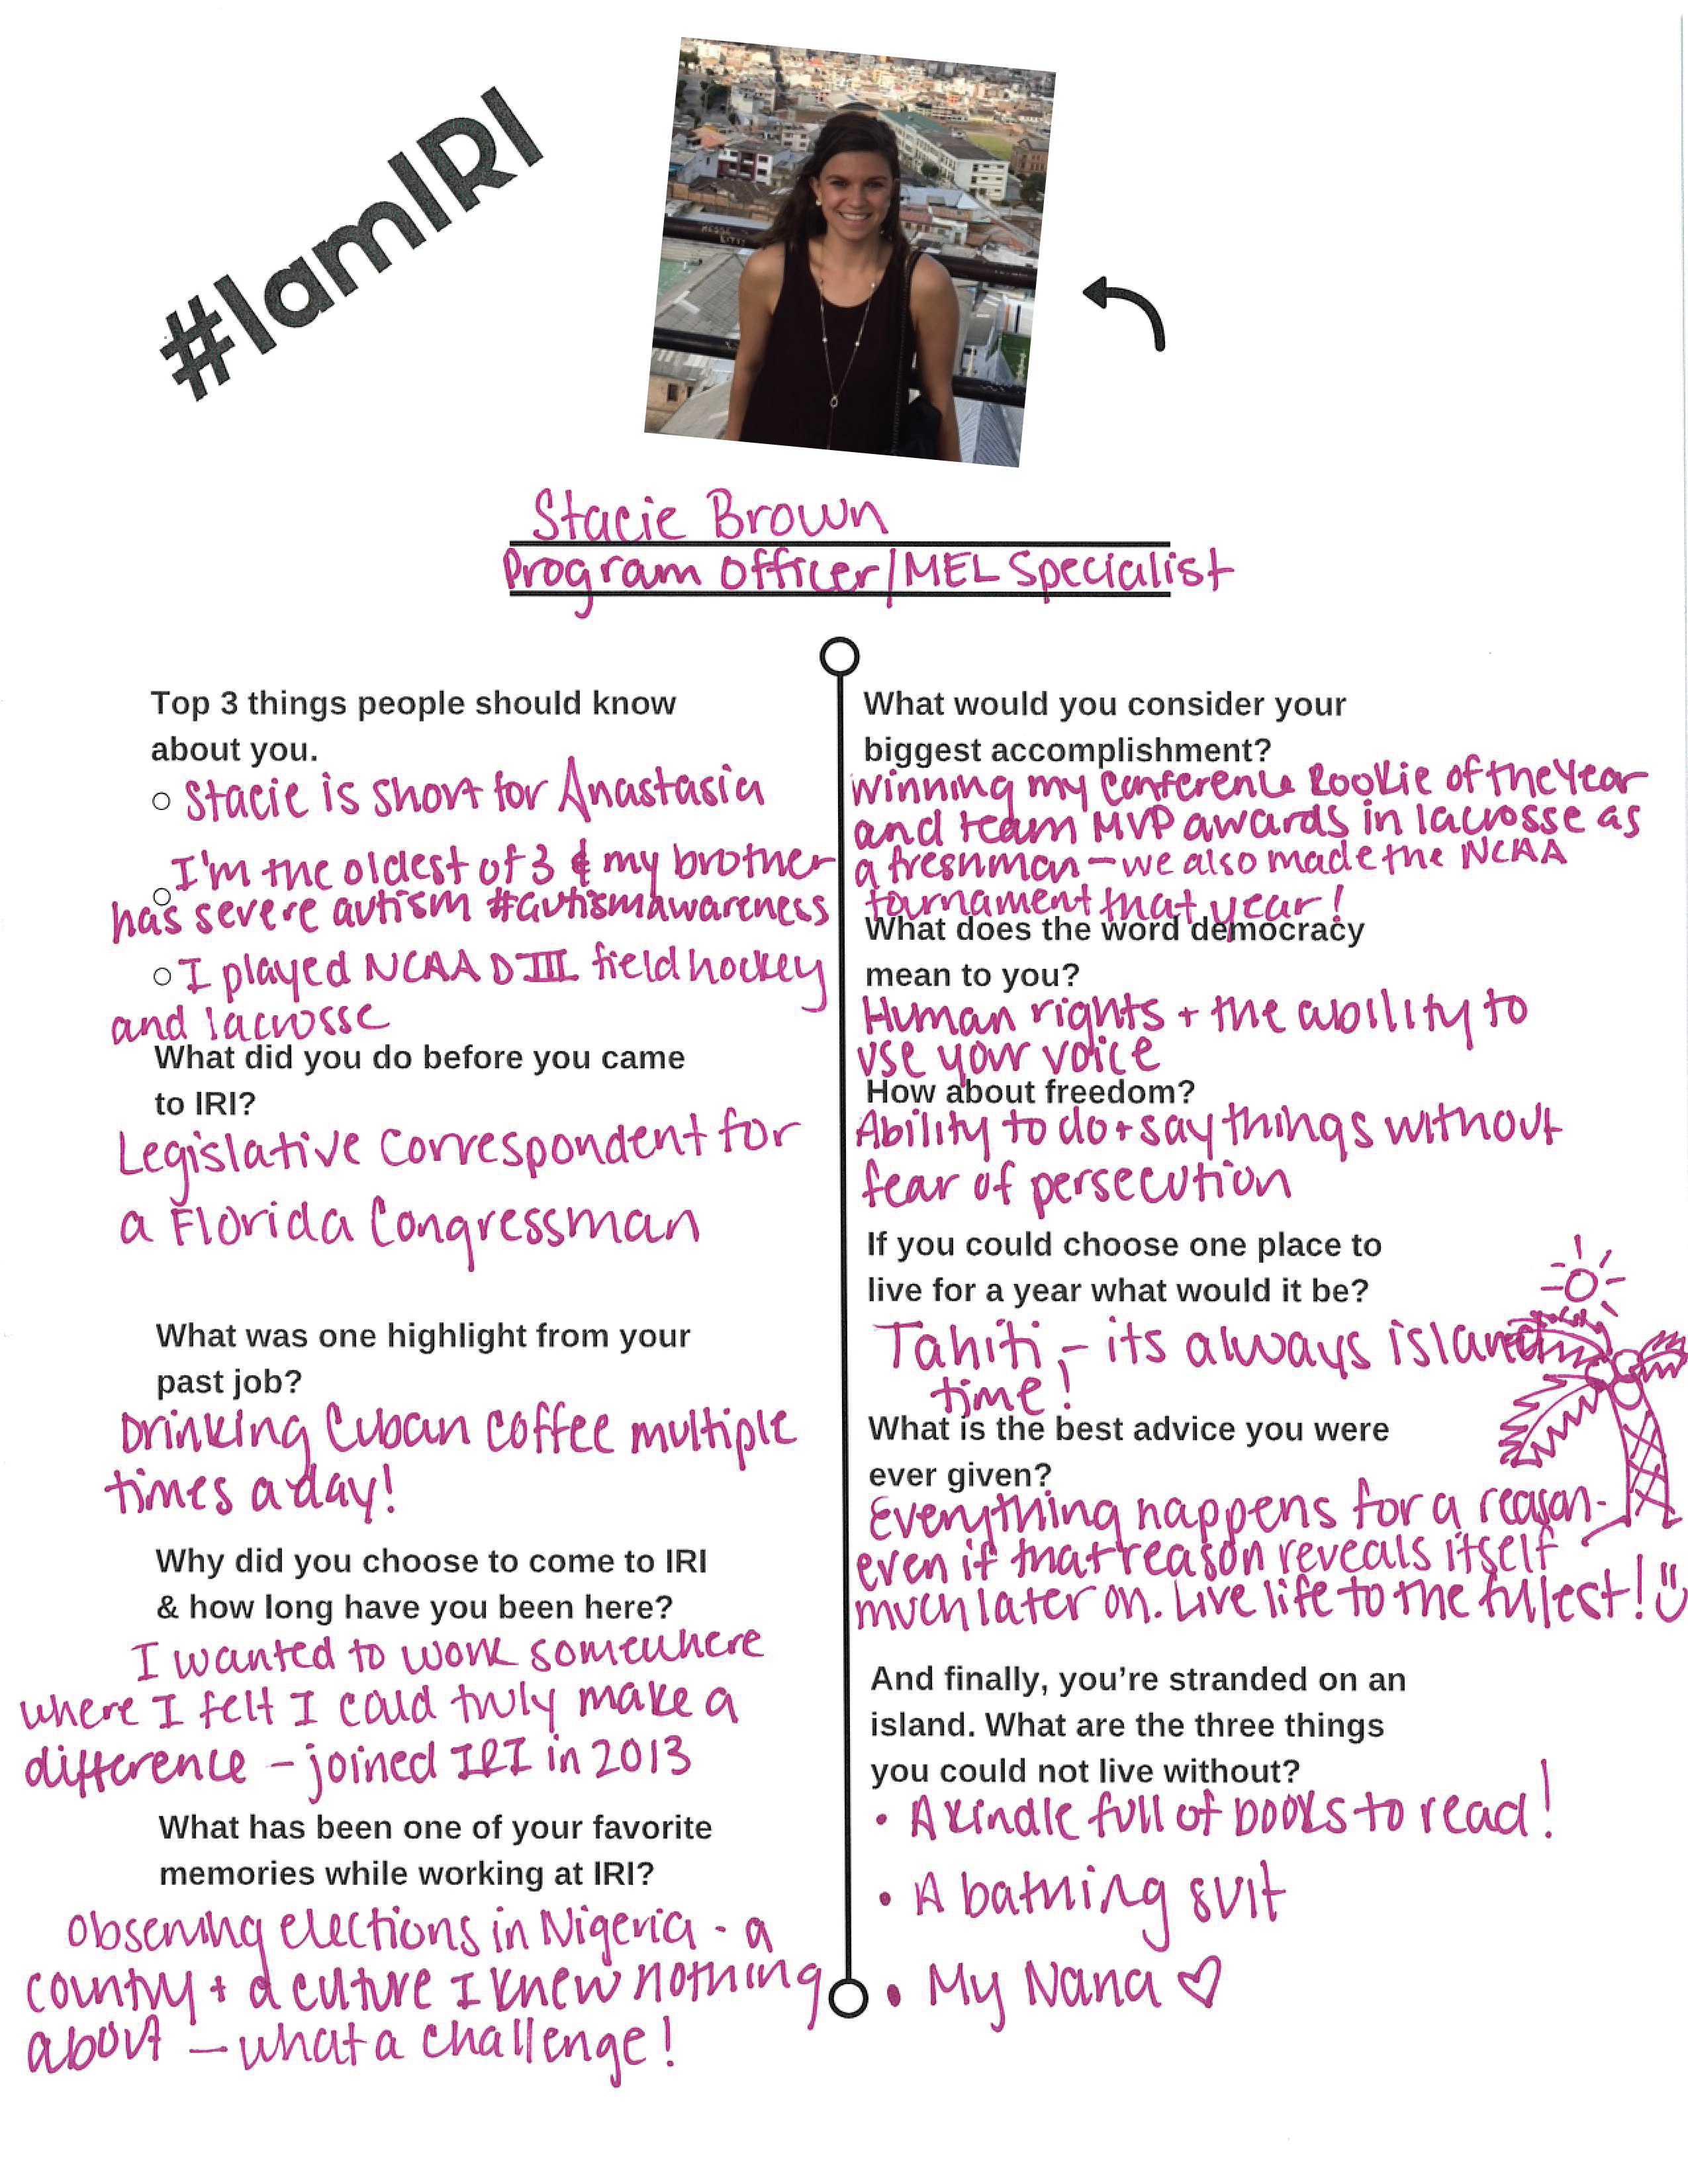 #IamIRI
Stacie Brown
Program Officer/MEL Specialist
Top 3 things people should know
about you.
Stacie is short for Anastasia
I'm the oldest of 3 & my brother
has severe autism #autismawareness
I played NCAA DIII field hockey
and lacrosse
What did you do before you came
to IRI?
Legislative Correspondent for
a Florida Congressman
What was one highlight from your
past job?
Drinking Cuban coffee multiple
times a day!
Why did you choose to come to IRI
& how long have you been here?
I wanted to work somewhere
where I felt I could truly make a
difference - joined IRI in 2013
What has been one of your favorite
memories while working at IRI?
Observing elections in Nigeria - a
country + a culture I knew nothing
about - what a challenge!
What would you consider your
biggest accomplishment?
Winning my Conference Rookie of the Year
and team MVP awards in lacrosse as
a freshman - we also made the NCAA
tournament that year!
What does the word democracy
mean to you?
Human rights + the ability to
use your voice
How about freedom?
Ability to do + say things without
fear of persecution
If you could choose one place to
live for a year what would it be?
Tahiti - its always island
time!
What is the best advice you were
ever given?
Everything happens for a reason -
even if that reason reveals itself
much later on. Live life to the fullest!
And finally, you're stranded on an
island. What are the three things
you could not live without?
• A kindle full of books to read!
• A bathing suit
• My Nana ♡